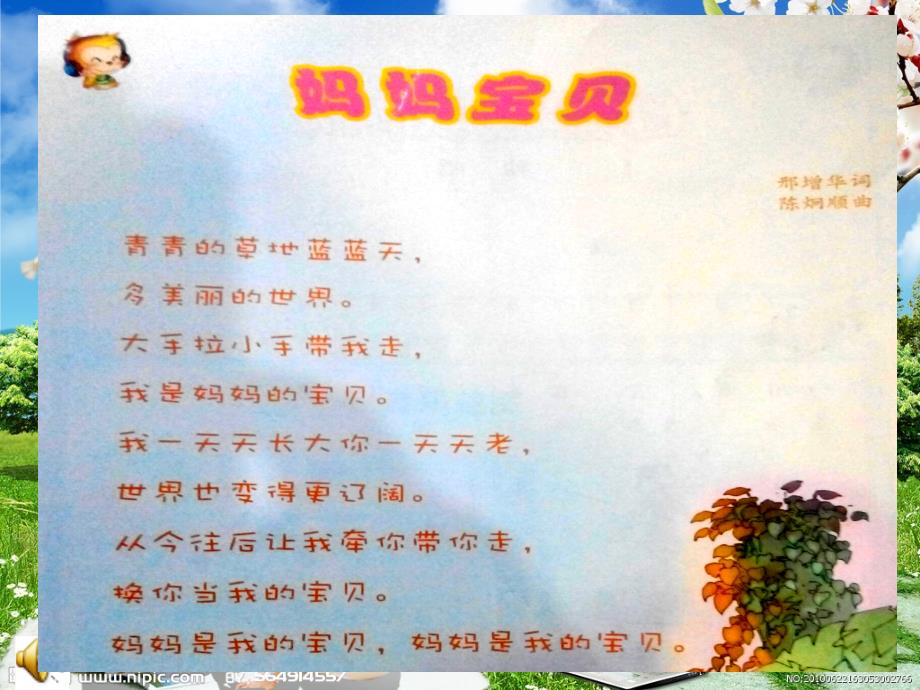 妈妈宝贝
邢增华词
陈炯顺曲
青青的草地蓝蓝天，
多美丽的世界。
大手拉小手带我走，
我是妈妈的宝贝。
我一天天长大你一天天老，
世界也变得更辽阔。
从今往后让我牵你带你走，
换你当我的宝贝。
妈妈是我的宝贝，妈妈是我的宝贝。
www.nipic.com
NO:20100622163053002766